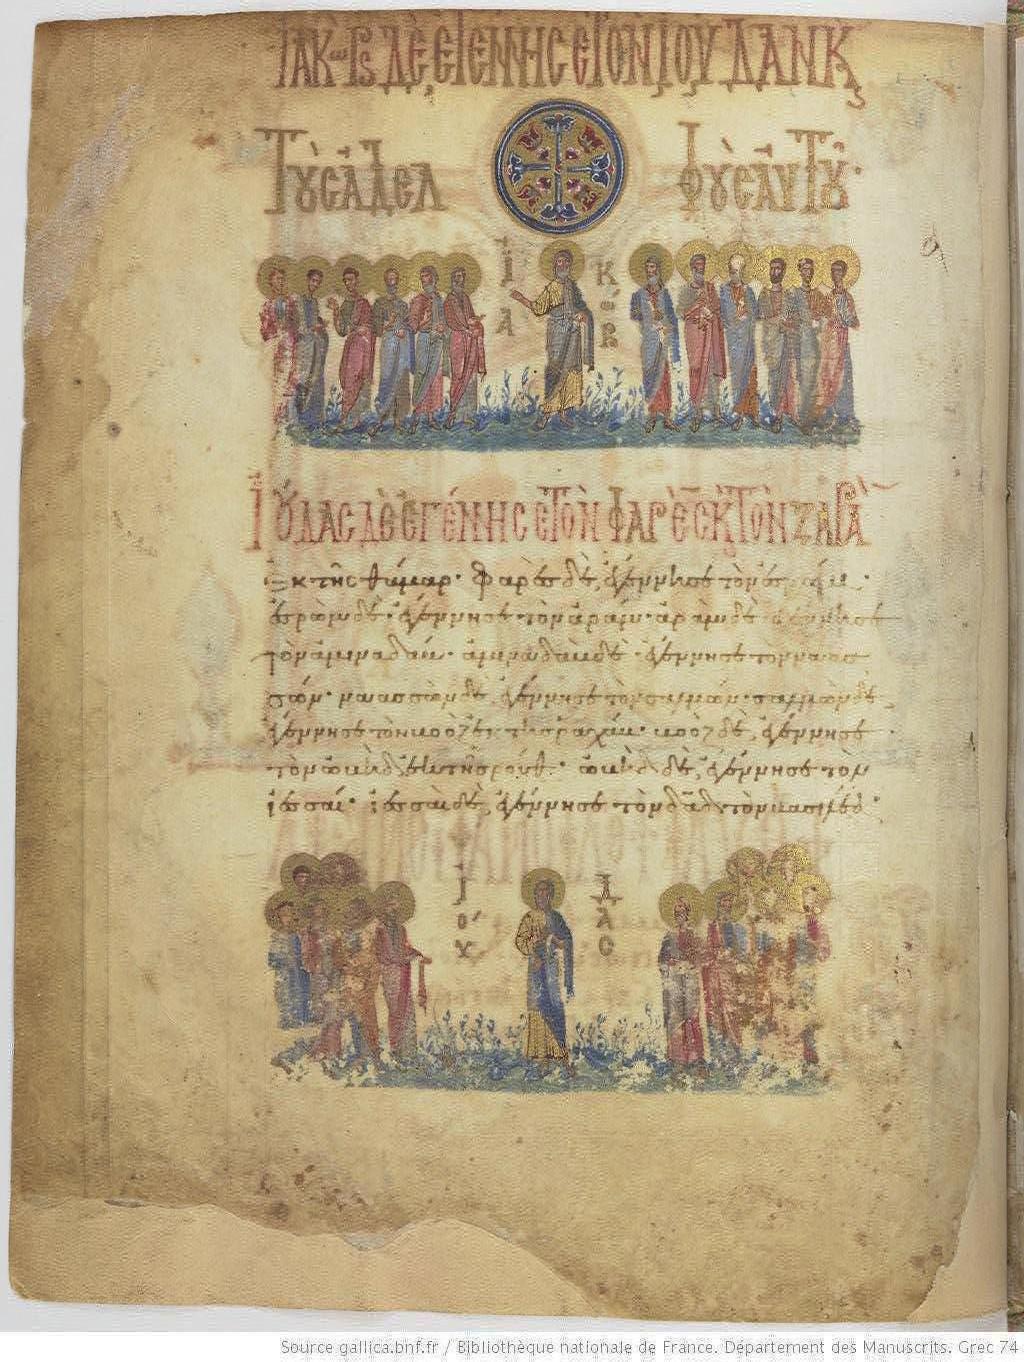 ἸΑΚὼΒ ΔῈ ἘΓΈΝΝΗΣΕ ΤῸΝ ἸΟΎΔΑΝ Κ
ΤΟῪΣ ἈΔΕΛ ΦΟῪΣ ΑΥ̓ΤΟΥ͂·
ἸΑ ΚὼΒ
ἸΟΎΔΑΣ ΔῈ ἘΓΈΝΝΗΣΕ ΤῸΝ ΦΑΡῈΣ Κ ΤῸΝ ΖΑΡᾺ
ἐκ τῆς θάμαρ· φαρὲς δὲ, ἐγέννησε τὸν ἐσρώμ·
ἐσρὼμ δὲ· ἐγέννησε τὸν ἀράμ· ἀρὰμ δὲ ἐγέννησε
τὸν ἀμιναδάμ· ἀμιναδὰμ δὲ· ἐγέννησε τὸν ναασ
σών· ναασσὼν δὲ, ἐγέννησε τὸν σαλμών· σαλμὼν δὲ,
ἐγέννησε τὸν βοὸζ ἐκ τῆς ῥαχάβ· βοὸζ δὲ, ἐγέννησε
τὸν ὠβὴδ ἐκ τῆς ῥούθ· ὠβὴδ δὲ, ἐγέννησε τὸν
ἰεσσαί· ἰεσσαὶ δὲ, ἐγέννησε τὸν δαδ τὸν βασιλέα·
ἸΟΎ ΔΑΣ
Source gallica.bnf.fr / Bibliothèque nationale de France. Département des Manuscrits. Grec 74